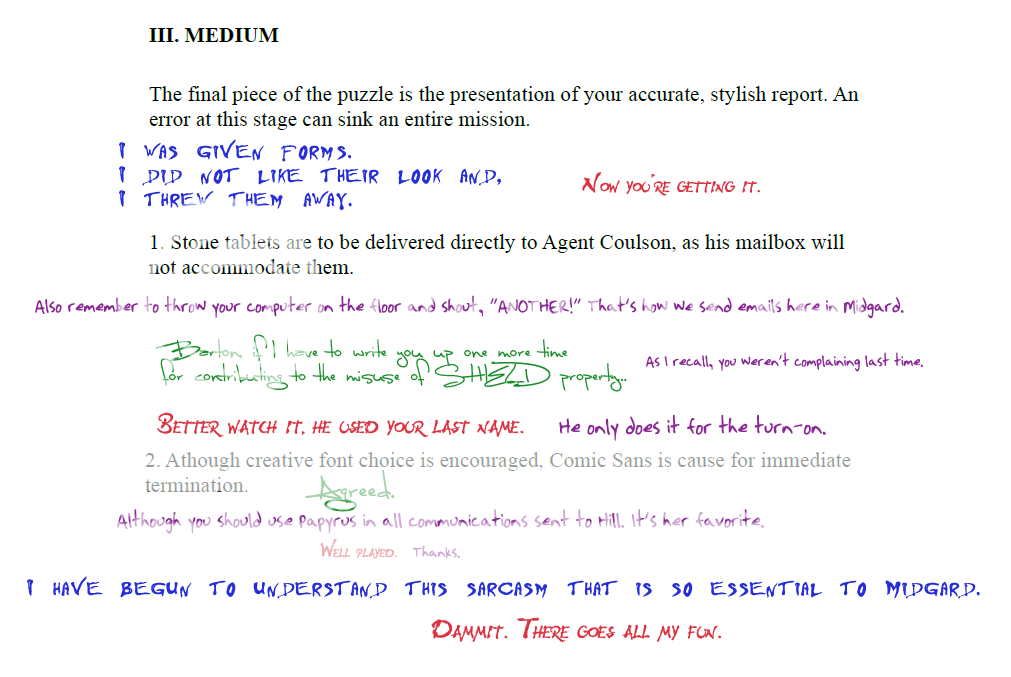 III. MEDIUM
The final piece of the puzzle is the presentation of your accurate, stylish report. An
error at this stage can sink an entire mission.
I WAS GIVEN FORMS.
I DID NOT LIKE THEIR LOOK AND,
I THREW THEM AWAY.
NOW YOU'RE GETTING IT.
1. Stone tablets are to be delivered directly to Agent Coulson, as his mailbox will
not accommodate them.
Also remember to throw your computer on the floor and shout, "ANOTHER!" That's how we send emails here in Midgard.
Barton if I have to write you up one more time
for contributing to the misuse of SHIELD property...
As I recall, you weren't complaining last time.
BETTER WATCH IT. HE USED YOUR LAST NAME.
He only does it for the turn-on.
2. Athough creative font choice is encouraged, Comic Sans is cause for immediate
termination.
Agreed.
Although you should use Papyrus in all communications sent to Hill. It's her favorite.
WELL PLAYED.
Thanks.
I HAVE BEGUN TO UNDERSTAND THIS SARCASM THAT IS SO ESSENTIAL TO MIDGARD.
DAMMIT. THERE GOES ALL MY FUN.